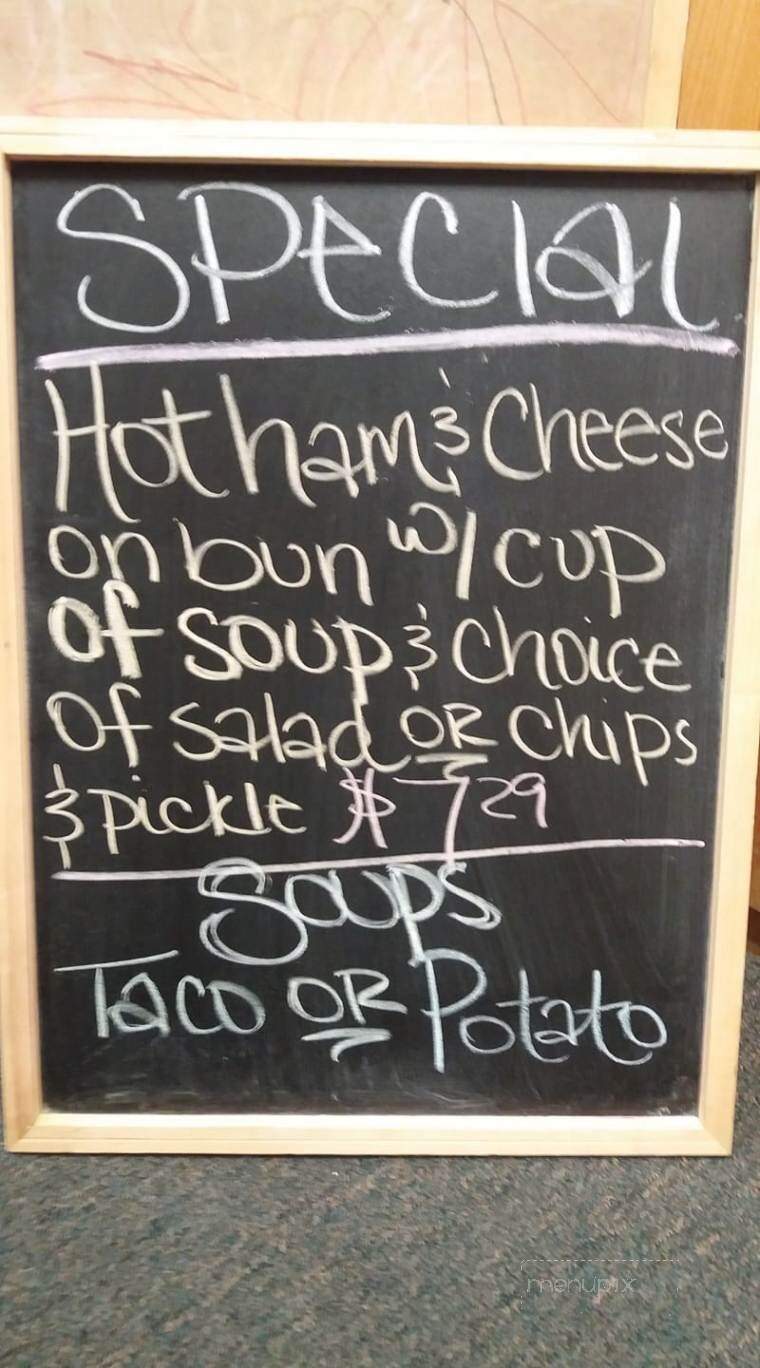 SPECIAL
Hot ham & Cheese
on bun w/ cup
Of soup & Choice
Of salad OR Chips
& Pickle $7.29
Soups
Taco OR Potato
menupix